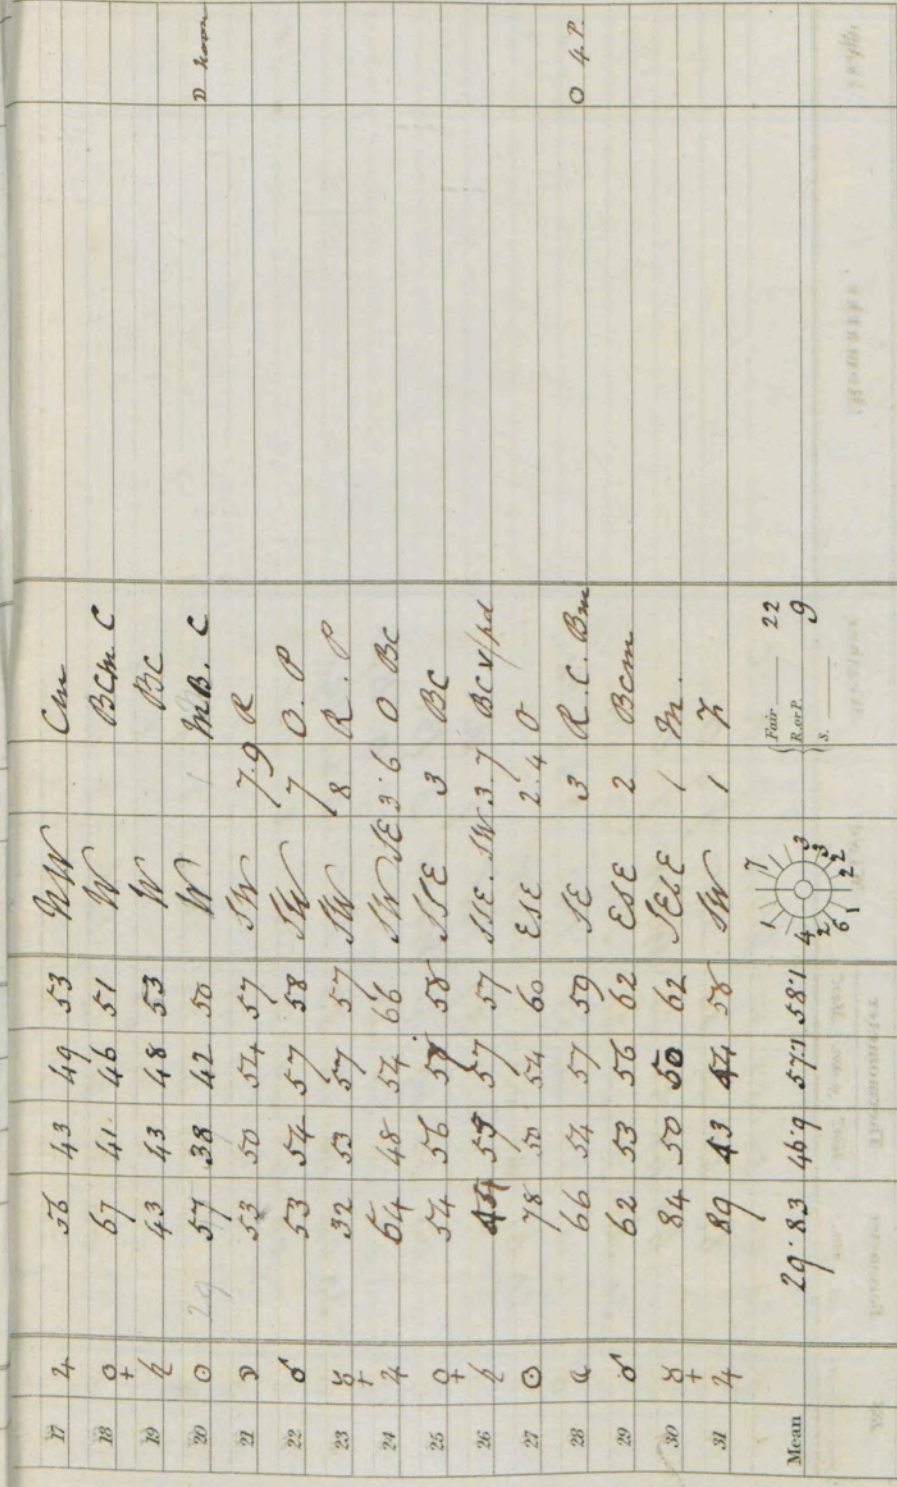 17 ♃ 56 43 49 53 NW Cm
18 ♀ 67 41 46 51 W BCm C
19 ♄ 43 43 48 53 W BC
20 ☉ 29 57 38 42 50 W 1 MB. C ☽ noon
21 ☽ 53 50 54 57 SW 7.9 R
22 ♂ 53 54 57 58 SW 7 O. P
23 ☿ 32 53 57 57 SW 8 R. P
24 ♃ 64 48 54 66 SW SE 3.6 O BC
25 ♀ 54 56 58 SSE 3 BC
26 ♄ 57 57 SSE. SW 3.7 BCV/pd
27 ☉ 78 50 54 60 ESE 2.4 O
28 ☾ 66 54 57 59 SE 3 R. C. Bm O 4 P.
29 ♂ 62 53 56 62 ESE 2 Bcm
30 ☿ 84 50 50 62 SESE 1 M.
31 ♃ 89 43 44 58 SW 1 Z
Mean 29.83 46.9 57.1 58.1 1 7 3 3 2 2 1 6 2 4 Fair 22
R. or P. 9
S.